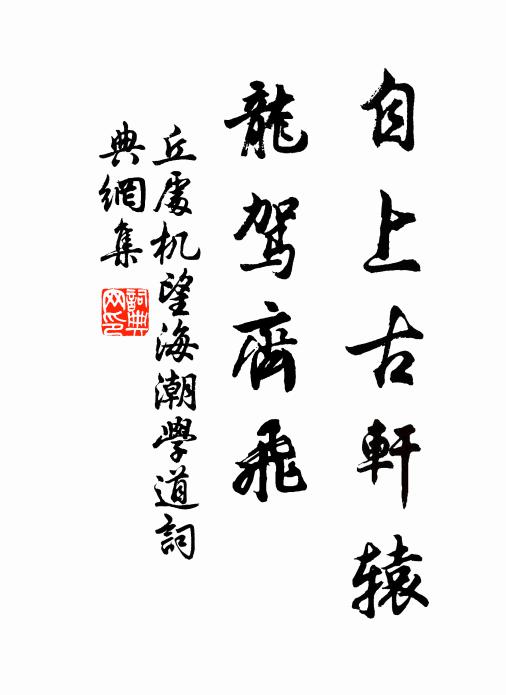 自上古軒辕
龍駕齊飛
丘處机望海潮學道詞
典網集
詞典
网印